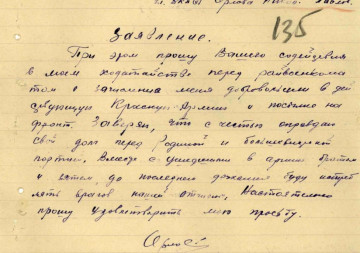 135
Заявление.
При этом прошу Вашего содействия
в моем ходатайстве перед райвоенкома
том о зачислении меня добровольцем в дей
ствующую Красную Армию и посылке на
фронт. Заверяю, что с честью оправдаю
свой долг перед Родиной и большевицкой
партией. Вместе с ушедшими в армию братом
и до последнего дыхания буду истреб
лять врагов нашей отчизны. Настоятельно
прошу удовлетворить мою просьбу.